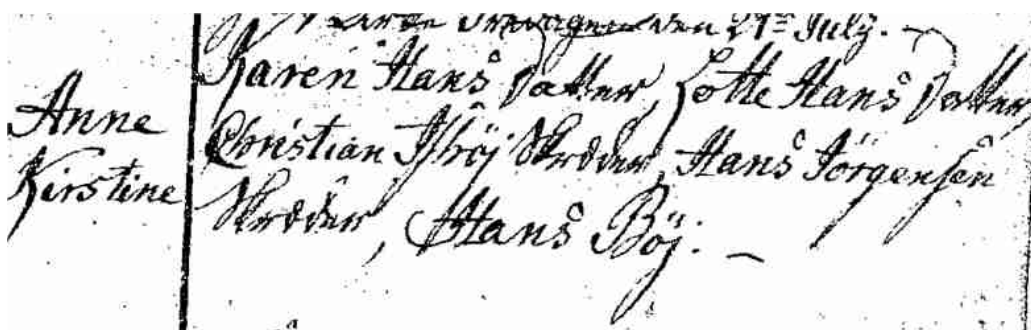 Anne
Kirstine
den 21de July. -
Karen Hans Datter, Lotte Hans Datter,
Christian Ishöj Skræder, Hans Jörgensen
Skræder, Hans Böj. -